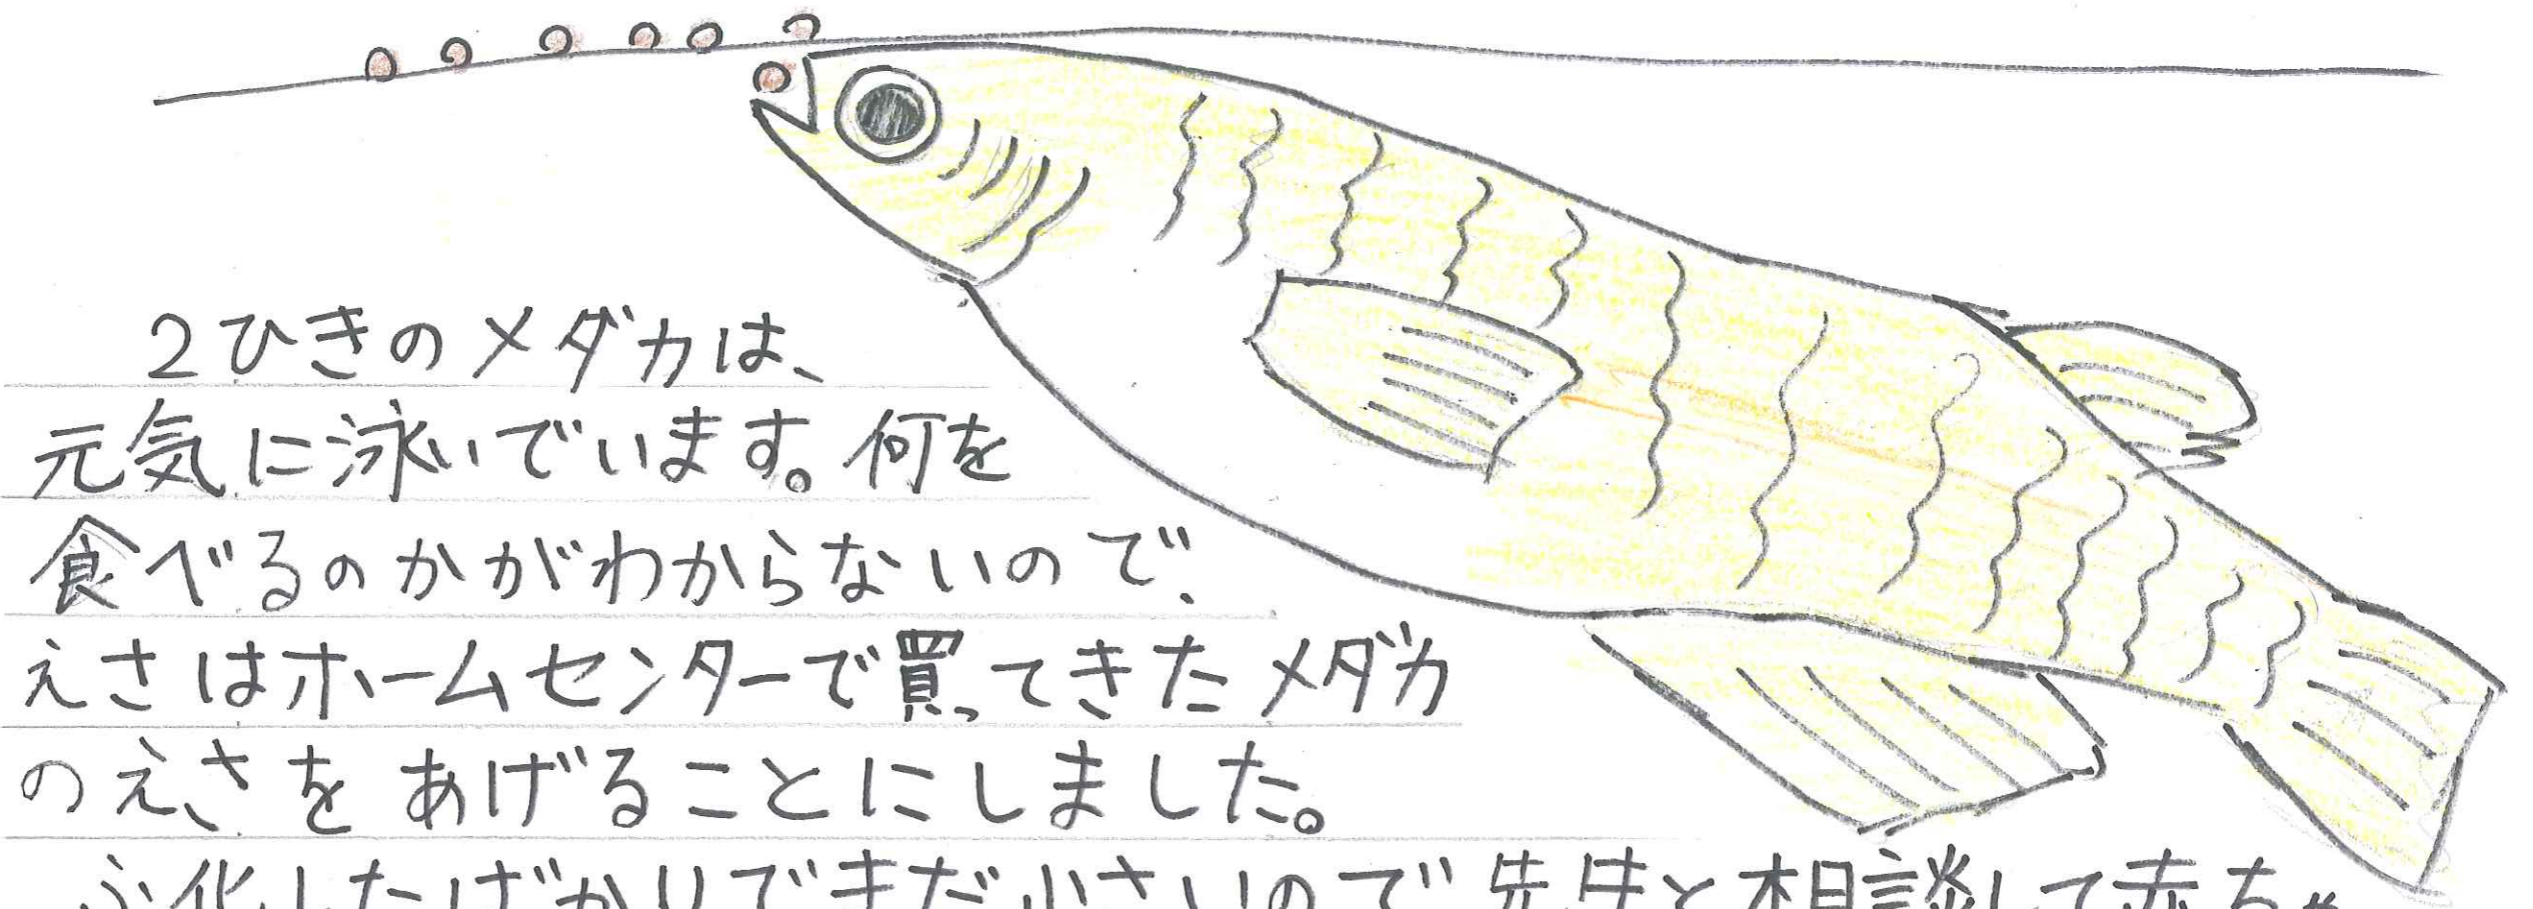 2ひきのメダカは、
元気に泳いでいます。何を
食べるのかがわからないので、
えさはホームセンターで買ってきたメダカ
のえさをあげることにしました。
ふ化したばかりでまだ小さいので先生と相談して赤ちゃ